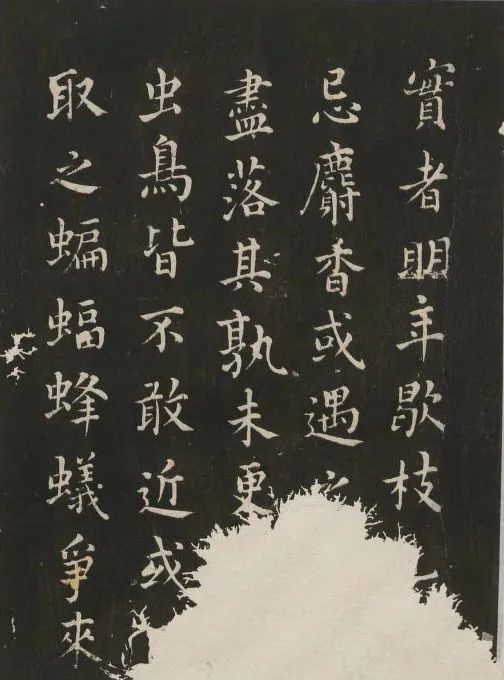 實者明年歇枝
忌麝香或遇
盡落其孰未更
虫鳥皆不敢近或
取之蝙蝠蜂蟻爭來